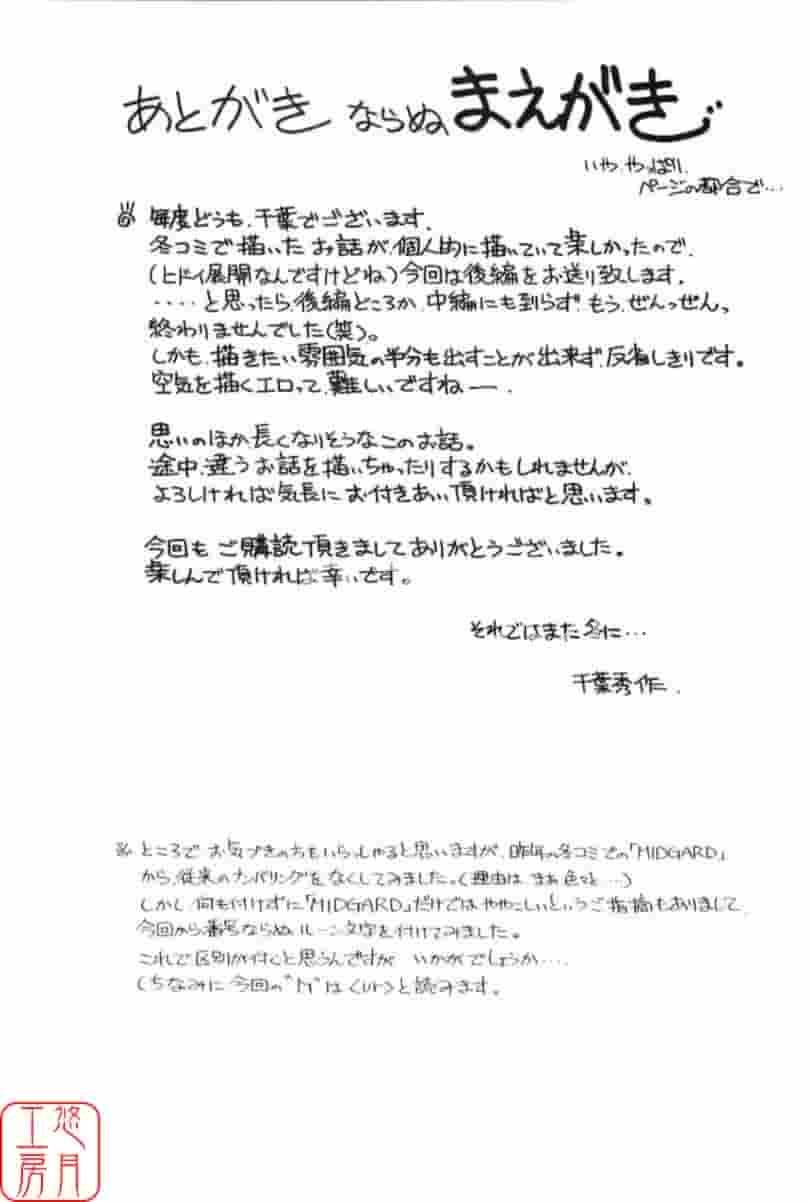 あとがき ならぬ、まえがき
いや、やっぱり、
ページの都合で…
毎度どうも、千葉でございます。
冬コミで描いたお話が、個人的に描いていて楽しかったので、
(ヒドイ展開なんですけどね)今回は後編をお送り致します。
‥‥と思ったら、後編どころか、中編にも到らず、もう、ぜんっぜんっ
終わりませんでした(笑)。
しかも、描きたい雰囲気の半分も出すことが出来ず、反省しきりです。
空気を描くエロって、難しいですねー.
思いのほか長くなりそうなこのお話。
途中、違うお話を描いちゃったりするかもしれませんが、
よろしければ気長にお付きあい頂ければと思います。
今回も ご購読頂きましてありがとうございました。
楽しんで頂ければ幸いです。
それではまた冬に…
千葉秀作.
※ ところで お気づきの方もいらっしゃると思いますが、昨年の冬コミでの「MIDGARD」
から、従来のナンバリングをなくしてみました。(理由は、まあ色々と…)
しかし、何も付けずに「MIDGARD」だけではややこしいというご指摘もありまして、
今回から番号ならぬ、ルーン文字を付けてみました。
これで区別が付くと思うんですが いかがでしょうか‥‥
(ちなみに今回の" "は と読みます。
悠月工房